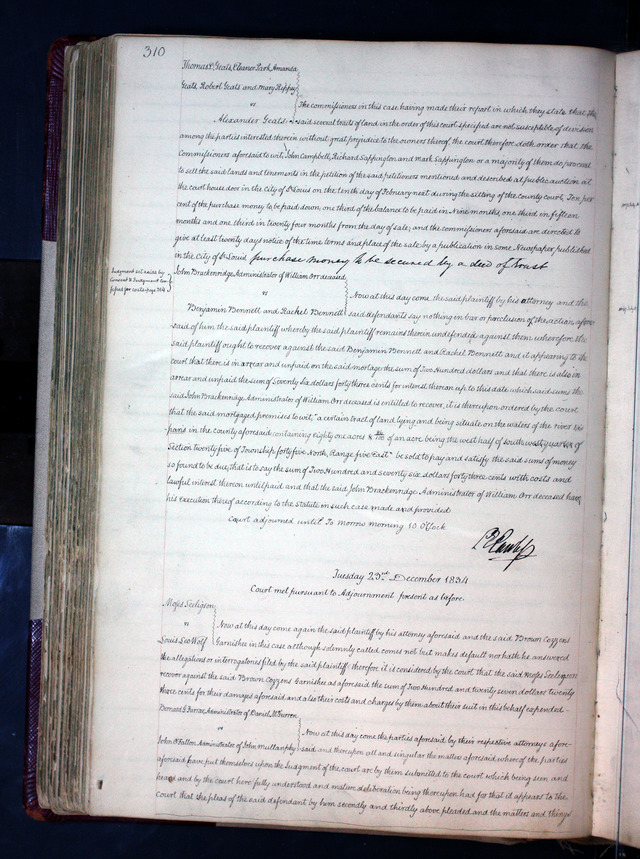 310
Thomas C Geats, Eleanor Park, Amanda
Geats Robert Geats and Mary Rippey
vs
The commissioners in this case having made their report in which they state that the
Alexander Geats said several tracts of land in the order of this court specified are not susceptible of devision
among the parties interested therein without great prejudice to the owners thereof, the court therefore doth order that the
Commissioners aforesaid to wit, John Campbell, Richard Sappington and Mark Sappington or a majority of them do proceed
to sell the said lands and tenements in the petition of the said petitioners mentioned and described at public auction at
the court house door in the City of St Louis on the tenth day of February next during the sitting of the county court, Ten per
cent of the purchase money to be paid down, one third of the balance to be paid in Nine months, one third in fifteen
months and one third in twenty four months from the day of sale; and the commissioners aforesaid are derected to
give at least twenty days notice of the time terms and place of the sale by a publication in some Newspaper published
in the City of St Louis purchase money to be secured by a deed of trust
Judgment set aside by
Consent & Judgment
for costs page 364
John Brackenridge Administrator of William Orr deceased
vs
Now at this day come the said plaintiff by his attorney and the
Benjamin Bennett and Rachel Bennett said defendants say nothing in bar or preclusion of the action afore
said of him the said plaintiff whereby the said plaintiff remains therein undefended against them wherefore the
said plaintiff ought to recover against the said Benjamin Bennett and Rachel Bennett and it appearing to the
court that there is in arrear and unpaid on the said mortgage the sum of Two Hundred dollars and that there is also in
arrear and unpaid the sum of seventy six dollars forty three cents for interest thereon up to this date which said sums the
said John Brackenridge Administrator of William Orr deceased is entitled to recover, it is thereupon ordered by the court
that the said mortgaged premises to wit, "a certain tract of land lying and being situate on the waters of the river des
peres in the county aforesaid containing eighty one acres & of an acre being the west half of southwest quarter of
Section twenty five of Township forty five North, Range five East" be sold to pay and satisfy the said sums of money
so found to be due, that is to say the sum of Two Hundred and seventy six dollars forty three cents with costs and
lawful interest thereon until paid and that the said John Brackenridge Administrator of William Orr deceased have
his execution thereof according to the statute in such case made and provided
Court adjourned until To morrow morning 10 O'Clock
Tuesday 23rd December 1834
Court met pursuant to Adjournment present as before.
Moses Seeligson
vs
Now at this day come again the said plaintiff by his attorney aforesaid and the said Brown Cozzens
Louis Leo Wolf Garnishee in this case although solemnly called comes not but makes default nor hath he answered
the allegations or interrogatories filed by the said plaintiff therefore it is considered by the court that the said Moses Seeligson
recover against the said Brown Cozzens Garnishee as aforesaid the sum of Two Hundred and twenty seven dollars twenty
three cents for their damages aforesaid and also their costs and charges by them about their suit in this behalf expended
Bernard G Farrar Administrator of Daniel
vs
Now at this day come the parties aforesaid by their respective attorneys afore-
John O'Fallon Administrator of John Mullanphy said and thereupon all and singular the matters aforesaid whereof the parties
aforesaid have put themselves upon the Judgment of the court are by them submitted to the court which being seen and
heard and by the court here fully understood and mature deliberation being thereupon had for that it appears to the
Court that the pleas of the said defendant by him secondly and thirdly above pleaded and the matters and things